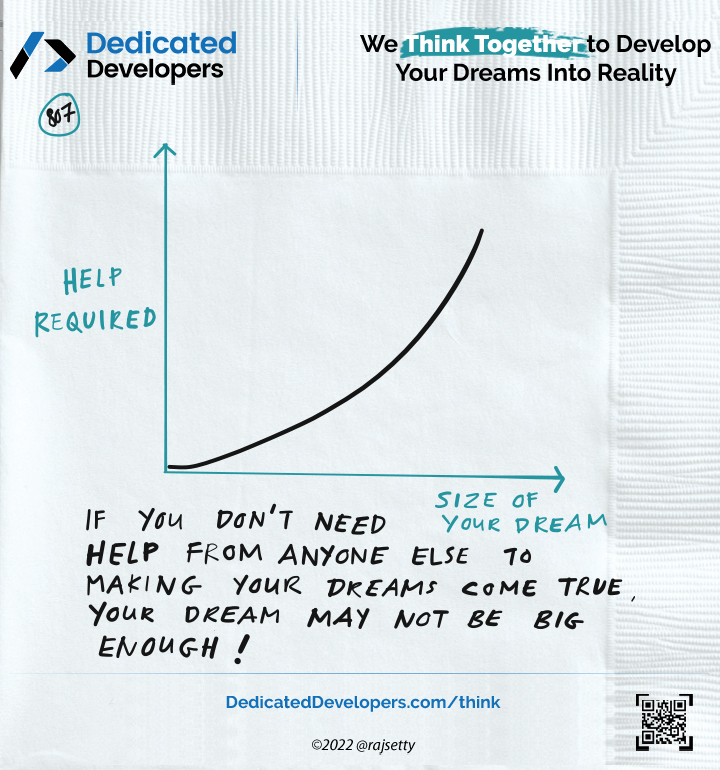 Dedicated
Developers
We Think Together to Develop
Your Dreams Into Reality
807
HELP
REQUIRED
SIZE OF
YOUR DREAM
IF YOU DON'T NEED
HELP FROM ANYONE ELSE TO
MAKING YOUR DREAMS COME TRUE,
YOUR DREAM MAY NOT BE BIG
ENOUGH!
DedicatedDevelopers.com/think
©2022 @rajsetty